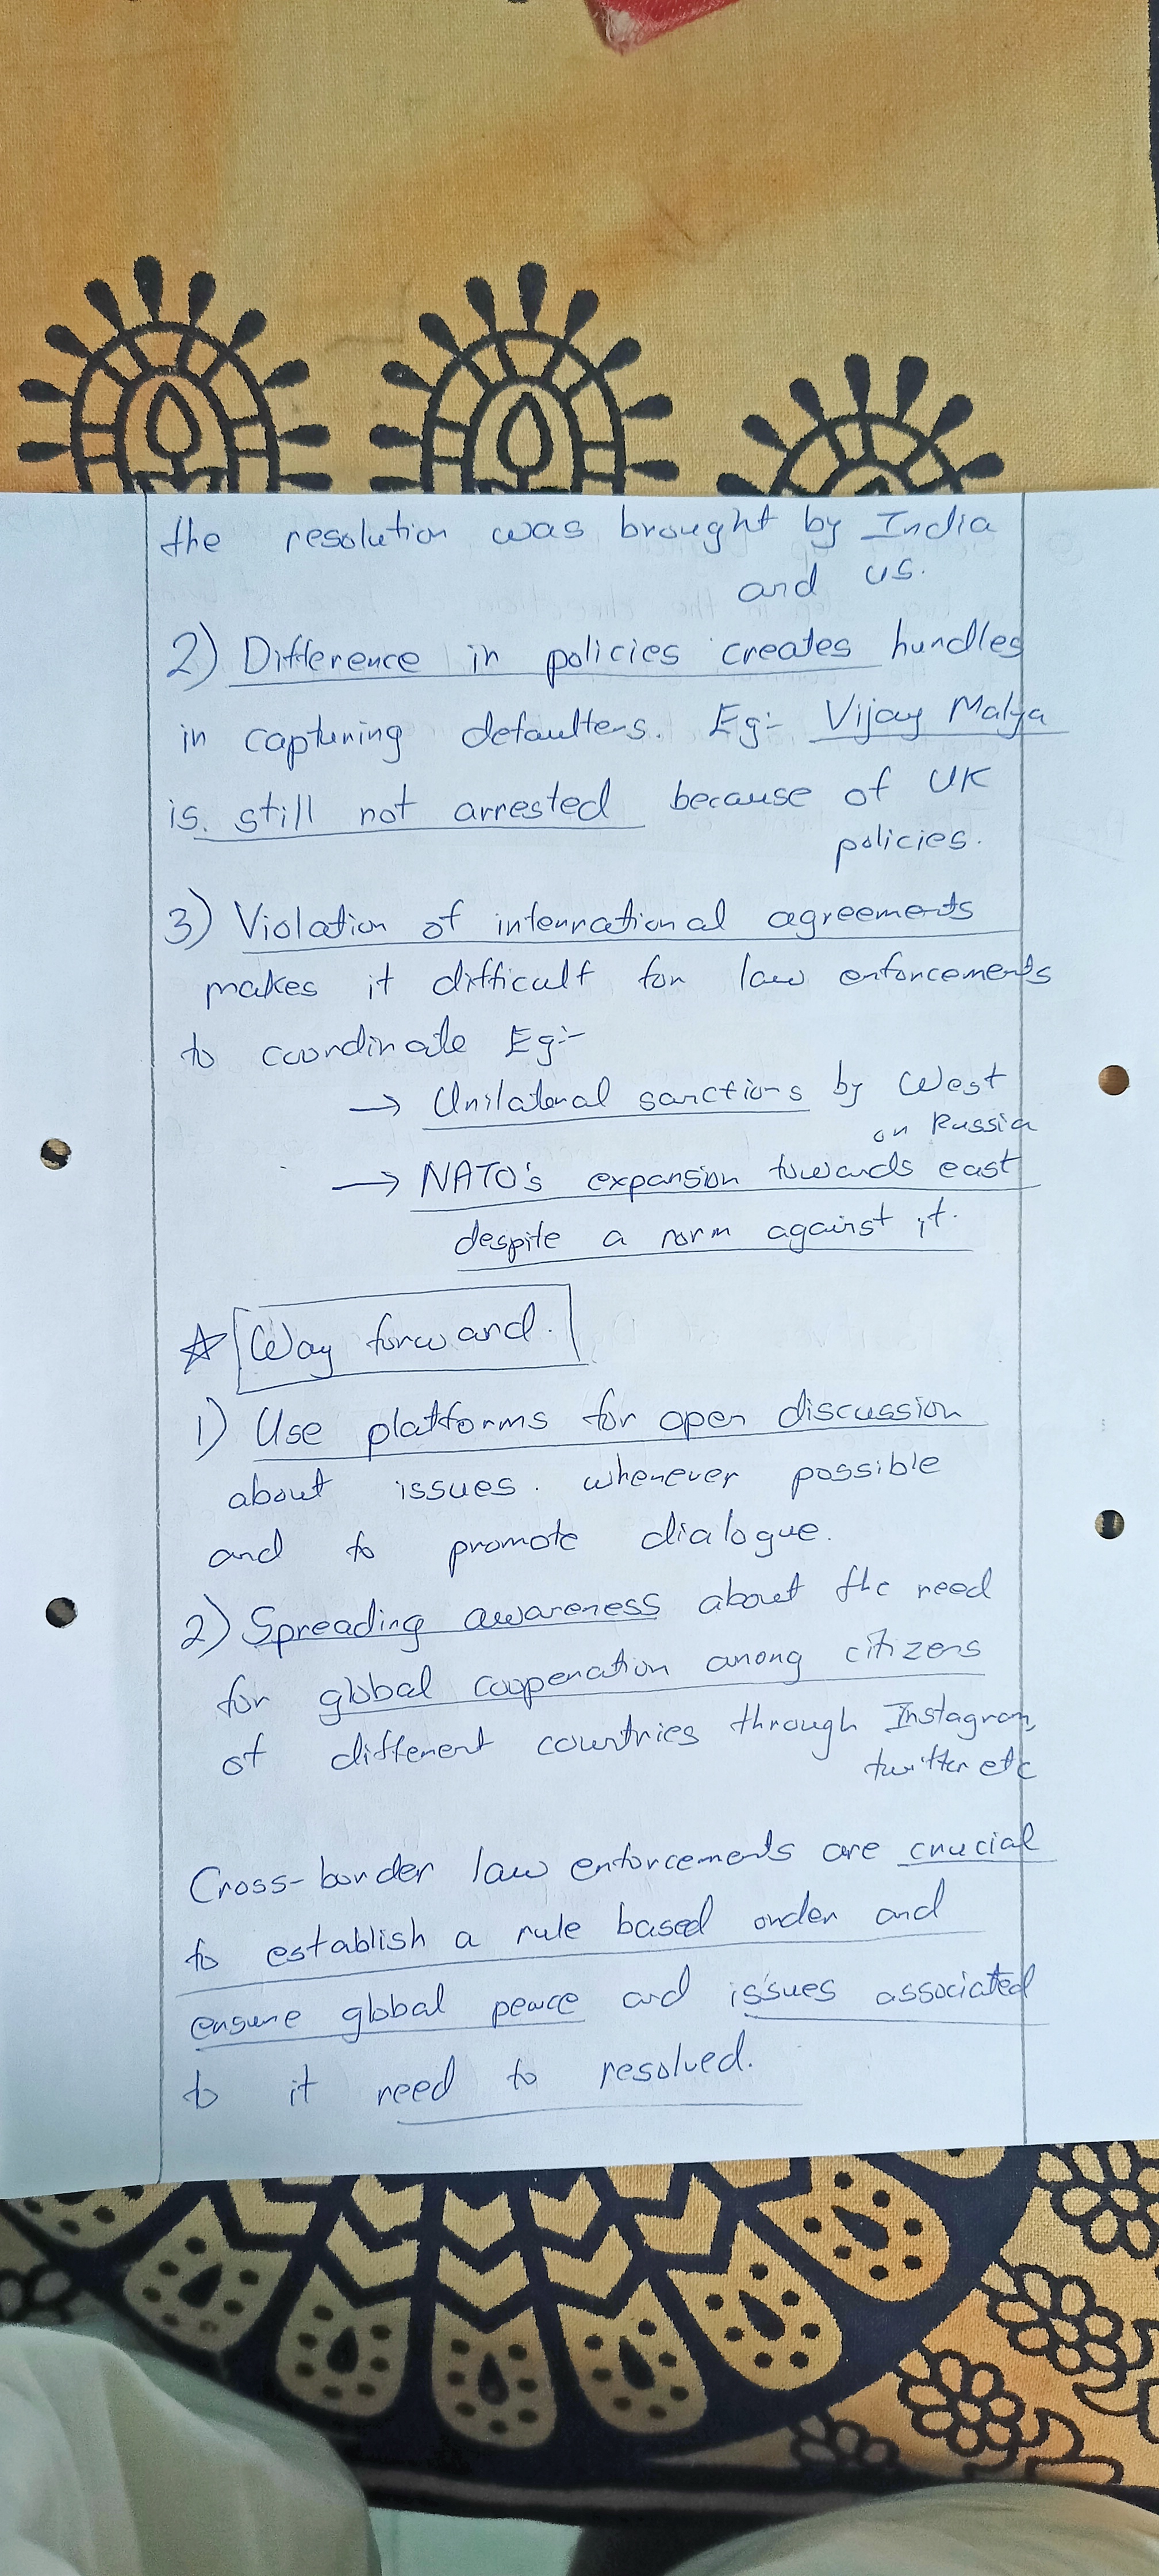 the resolution was brought by India
and US.
2) Difference in policies creates hundles
in capturing defaulters. Eg:- Vijay Malya
is still not arrested because of UK
policies.
3) Violation of international agreements
makes it difficult for law enforcements
to coordinate Eg:-
→ Unilateral sanctions by West
on Russia
→ NATO's expansion towards east
despite a norm against it.
☆ Way forward.
1) Use platforms for open discussion
about issues. whenever possible
and to promote dialogue.
2) Spreading awareness about the need
for global cooperation among citizens
of different countries through Instagram,
twitter etc
Cross-border law enforcements are crucial
to establish a rule based order and
ensure global peace and issues associated
to it need to resolved.